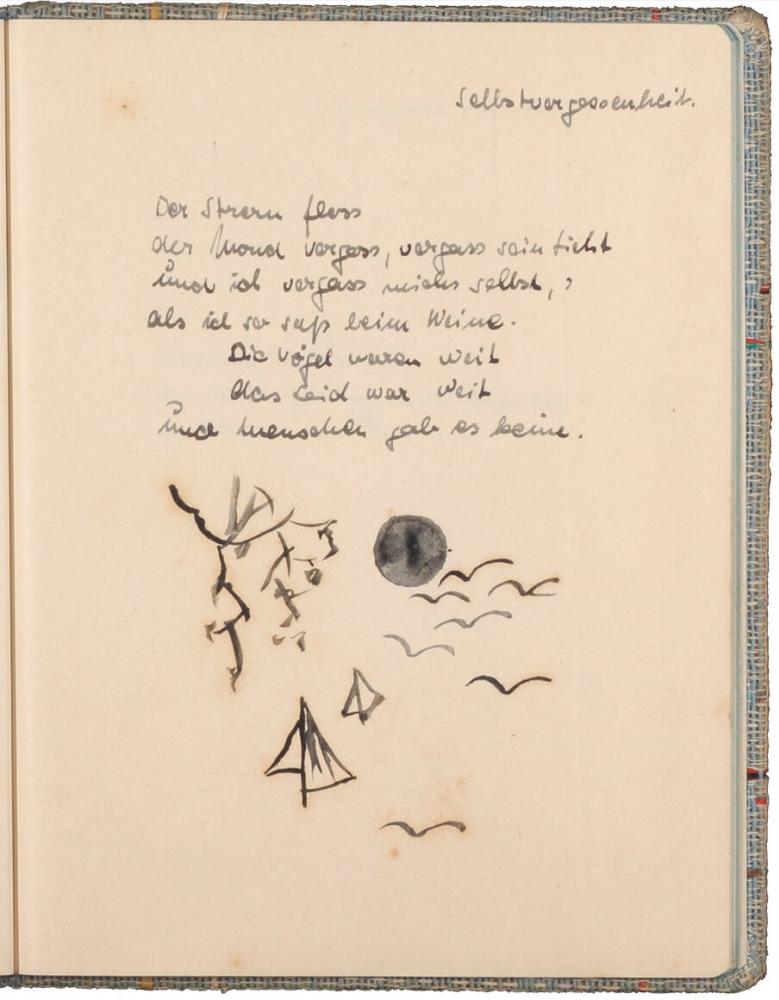 Selbstvergessenheit.
Der Strom floss
der Mond vergass, vergass sein Licht
Und ich vergass mich selbst,
als ich so saß beim Weine.
Die Vögel waren weit
das Leid war weit
Und Menschen gab es keine.